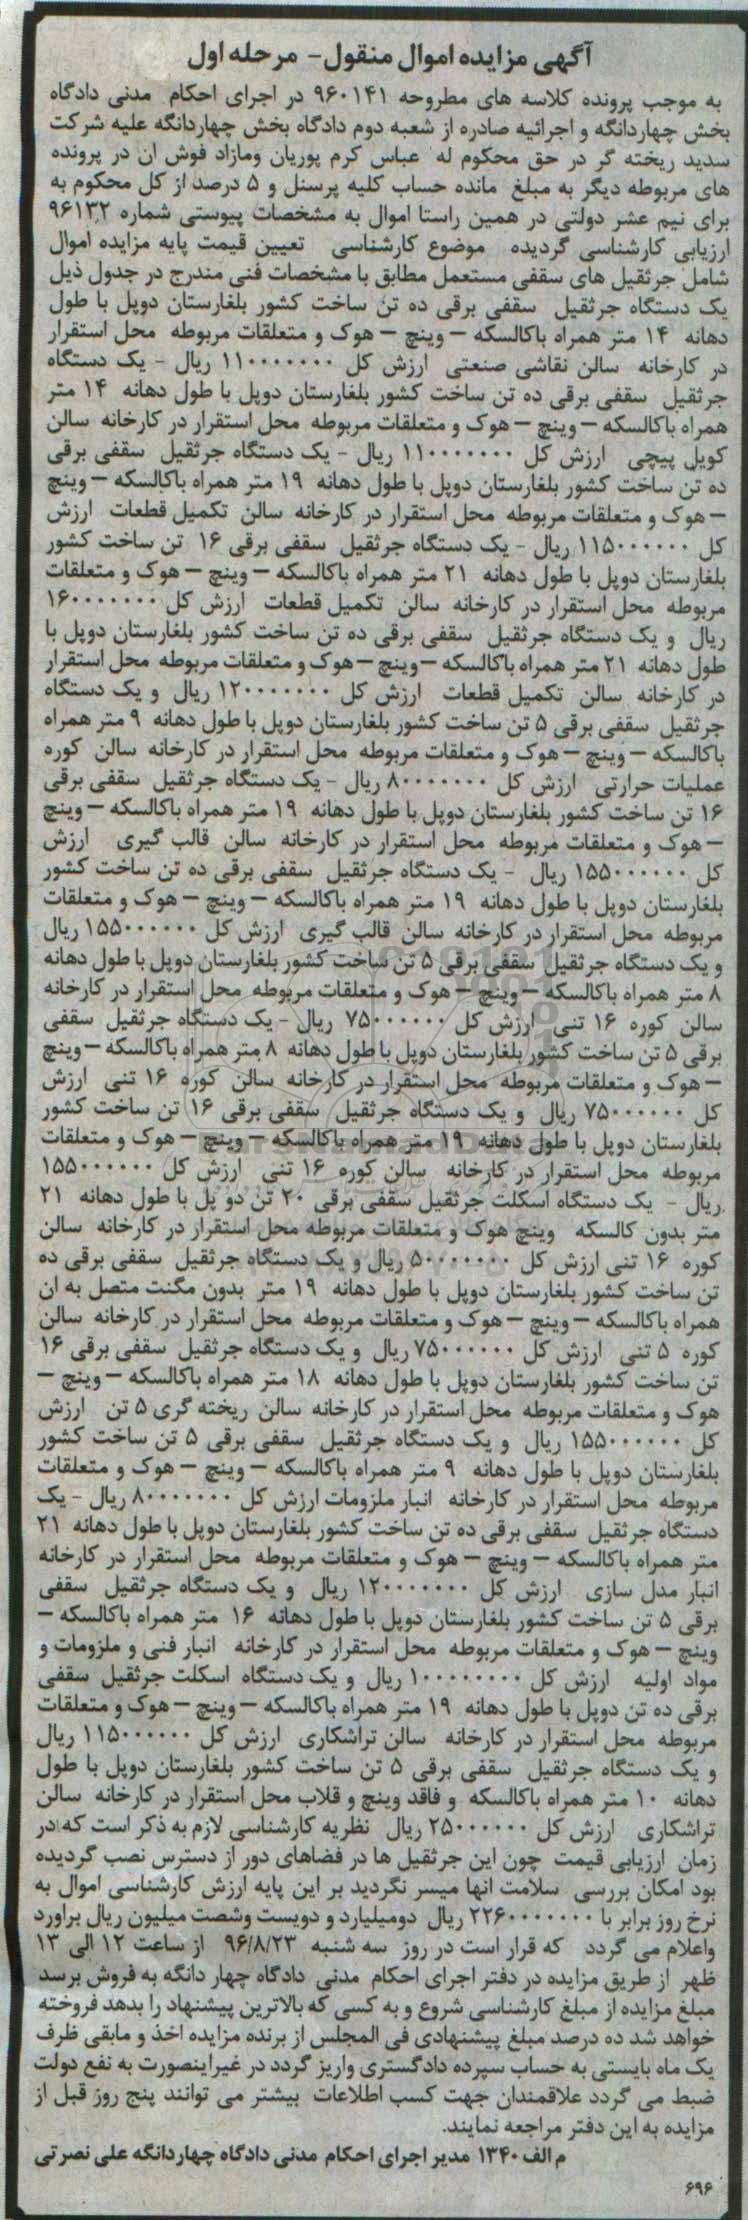 آگهی مزایده اموال منقول- مرحله اول
به موجب پرونده کلاسه های مطروحه ۹۶۰۱۴۱ در اجرای احکام مدنی دادگاه
بخش چهاردانگه و اجرائیه صادره از شعبه دوم دادگاه بخش چهاردانگه علیه شرکت
سدید ریخته گر در حق محکوم له عباس کرم پوریان ومازاد فوش ان در پرونده
های مربوطه دیگر به مبلغ مانده حساب کلیه پرسنل و ۵ درصد از کل محکوم به
برای نیم عشر دولتی در همین راستا اموال به مشخصات پیوستی شماره ۹۶۱۳۲
ارزیابی کارشناسی گردیده موضوع کارشناسی تعیین قیمت پایه مزایده اموال
شامل جرثقیل های سقفی مستعمل مطابق با مشخصات فنی مندرج در جدول ذیل
یک دستگاه جرثقیل سقفی برقی ده تن ساخت کشور بلغارستان دوپل با طول
دهانه ۱۴ متر همراه باکالسکه – وینچ – هوک و متعلقات مربوطه محل استقرار
در کارخانه سالن نقاشی صنعتی ارزش کل ۱۱۰۰۰۰۰۰۰ ریال - یک دستگاه
جرثقیل سقفی برقی ده تن ساخت کشور بلغارستان دوپل با طول دهانه ۱۴ متر
همراه باکالسکه – وینچ – هوک و متعلقات مربوطه محل استقرار در کارخانه سالن
کویل پیچی ارزش کل ۱۱۰۰۰۰۰۰۰ ریال - یک دستگاه جرثقیل سقفی برقی
ده تن ساخت کشور بلغارستان دوپل با طول دهانه ۱۹ متر همراه باکالسکه – وینچ
– هوک و متعلقات مربوطه محل استقرار در کارخانه سالن تکمیل قطعات ارزش
کل ۱۱۵۰۰۰۰۰۰ ریال - یک دستگاه جرثقیل سقفی برقی ۱۶ تن ساخت کشور
بلغارستان دوپل با طول دهانه ۲۱ متر همراه باکالسکه – وینچ – هوک و متعلقات
مربوطه محل استقرار در کارخانه سالن تکمیل قطعات ارزش کل ۱۶۰۰۰۰۰۰۰
ریال و یک دستگاه جرثقیل سقفی برقی ده تن ساخت کشور بلغارستان دوپل با
طول دهانه ۲۱ متر همراه باکالسکه –وینچ –هوک و متعلقات مربوطه محل استقرار
در کارخانه سالن تکمیل قطعات ارزش کل ۱۲۰۰۰۰۰۰۰ ریال و یک دستگاه
جرثقیل سقفی برقی ۵ تن ساخت کشور بلغارستان دوپل با طول دهانه ۹ متر همراه
باکالسکه – وینچ – هوک و متعلقات مربوطه محل استقرار در کارخانه سالن کوره
عملیات حرارتی ارزش کل ۸۰۰۰۰۰۰۰ ریال - یک دستگاه جرثقیل سقفی برقی
۱۶ تن ساخت کشور بلغارستان دوپل با طول دهانه ۱۹ متر همراه باکالسکه – وینچ
– هوک و متعلقات مربوطه محل استقرار در کارخانه سالن قالب گیری ارزش
کل ۱۵۵۰۰۰۰۰۰ ریال - یک دستگاه جرثقیل سقفی برقی ده تن ساخت کشور
بلغارستان دوپل با طول دهانه ۱۹ متر همراه باکالسکه – وینچ – هوک و متعلقات
مربوطه محل استقرار در کارخانه سالن قالب گیری ارزش کل ۱۵۵۰۰۰۰۰۰ ریال
و یک دستگاه جرثقیل سقفی برقی ۵ تن ساخت کشور بلغارستان دوپل با طول دهانه
۸ متر همراه باکالسکه –وینچ – هوک و متعلقات مربوطه محل استقرار در کارخانه
سالن کوره ۱۶ تنی ارزش کل ۷۵۰۰۰۰۰۰ ریال - یک دستگاه جرثقیل سقفی
برقی ۵ تن ساخت کشور بلغارستان دوپل با طول دهانه ۸ متر همراه باکالسکه –وینچ
– هوک و متعلقات مربوطه محل استقرار در کارخانه سالن کوره ۱۶ تنی ارزش
کل ۷۵۰۰۰۰۰۰ ریال و یک دستگاه جرثقیل سقفی برقی ۱۶ تن ساخت کشور
بلغارستان دوپل با طول دهانه ۱۹ متر همراه باکالسکه – وینچ – هوک و متعلقات
مربوطه محل استقرار در کارخانه سالن کوره ۱۶ تنی ارزش کل ۱۵۵۰۰۰۰۰۰
ریال – یک دستگاه اسکلت جرثقیل سقفی برقی ۲۰ تن دو پل با طول دهانه ۲۱
متر بدون کالسکه وینچ هوک و متعلقات مربوطه محل استقرار در کارخانه سالن
کوره ۱۶ تنی ارزش کل ۵۰۰۰۰۰۰۰ ریال و یک دستگاه جرثقیل سقفی برقی ده
تن ساخت کشور بلغارستان دوپل با طول دهانه ۱۹ متر بدون مگنت متصل به ان
همراه باکالسکه – وینچ – هوک و متعلقات مربوطه محل استقرار در کارخانه سالن
کوره ۵ تنی ارزش کل ۷۵۰۰۰۰۰۰ ریال و یک دستگاه جرثقیل سقفی برقی ۱۶
تن ساخت کشور بلغارستان دوپل با طول دهانه ۱۸ متر همراه باکالسکه – وینچ –
هوک و متعلقات مربوطه محل استقرار در کارخانه سالن ریخته گری ۵ تن ارزش
کل ۱۵۵۰۰۰۰۰۰ ریال و یک دستگاه جرثقیل سقفی برقی ۵ تن ساخت کشور
بلغارستان دوپل با طول دهانه ۹ متر همراه باکالسکه – وینچ – هوک و متعلقات
مربوطه محل استقرار در کارخانه انبار ملزومات ارزش کل ۸۰۰۰۰۰۰۰ ریال - یک
دستگاه جرثقیل سقفی برقی ده تن ساخت کشور بلغارستان دوپل با طول دهانه ۲۱
متر همراه باکالسکه – وینچ – هوک و متعلقات مربوطه محل استقرار در کارخانه
انبار مدل سازی ارزش کل ۱۲۰۰۰۰۰۰۰ ریال و یک دستگاه جرثقیل سقفی
برقی ۵ تن ساخت کشور بلغارستان دوپل با طول دهانه ۱۶ متر همراه باکالسکه –
وینچ – هوک و متعلقات مربوطه محل استقرار در کارخانه انبار فنی و ملزومات و
مواد اولیه ارزش کل ۱۰۰۰۰۰۰۰۰ ریال و یک دستگاه اسکلت جرثقیل سقفی
برقی ده تن دوپل با طول دهانه ۱۹ متر همراه باکالسکه – وینچ – هوک و متعلقات
مربوطه محل استقرار در کارخانه سالن تراشکاری ارزش کل ۱۱۵۰۰۰۰۰۰ ریال
و یک دستگاه جرثقیل سقفی برقی ۵ تن ساخت کشور بلغارستان دوپل با طول
دهانه ۱۰ متر همراه باکالسکه و فاقد وینچ و قلاب محل استقرار در کارخانه سالن
تراشکاری ارزش کل ۲۵۰۰۰۰۰۰ ریال نظریه کارشناسی لازم به ذکر است که در
زمان ارزیابی قیمت چون این جرثقیل ها در فضاهای دور از دسترس نصب گردیده
بود امکان بررسی سلامت انها میسر نگردید بر این پایه ارزش کارشناسی اموال به
نرخ روز برابر با ۲۲۶۰۰۰۰۰۰۰ ریال دومیلیارد و دویست وشصت میلیون ریال براورد
واعلام می گردد که قرار است در روز سه شنبه ۹۶/۸/۲۳ از ساعت ۱۲ الی ۱۳
ظهر از طریق مزایده در دفتر اجرای احکام مدنی دادگاه چهار دانگه به فروش برسد
مبلغ مزایده از مبلغ کارشناسی شروع و به کسی که بالاترین پیشنهاد را بدهد فروخته
خواهد شد ده درصد مبلغ پیشنهادی فی المجلس از برنده مزایده اخذ و مابقی ظرف
یک ماه بایستی به حساب سپرده دادگستری واریز گردد در غیراینصورت به نفع دولت
ضبط می گردد علاقمندان جهت کسب اطلاعات بیشتر می توانند پنج روز قبل از
مزایده به این دفتر مراجعه نمایند.
م الف ۱۳۴۰ مدیر اجرای احکام مدنی دادگاه چهاردانگه علی نصرتی
۶۹۶